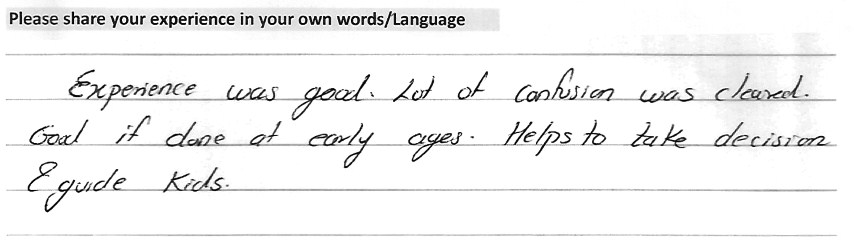 Please share your experience in your own words/Language
Experience was good. Lot of confusion was cleared.
Good if done at early ages. Helps to take decision
& guide Kids.